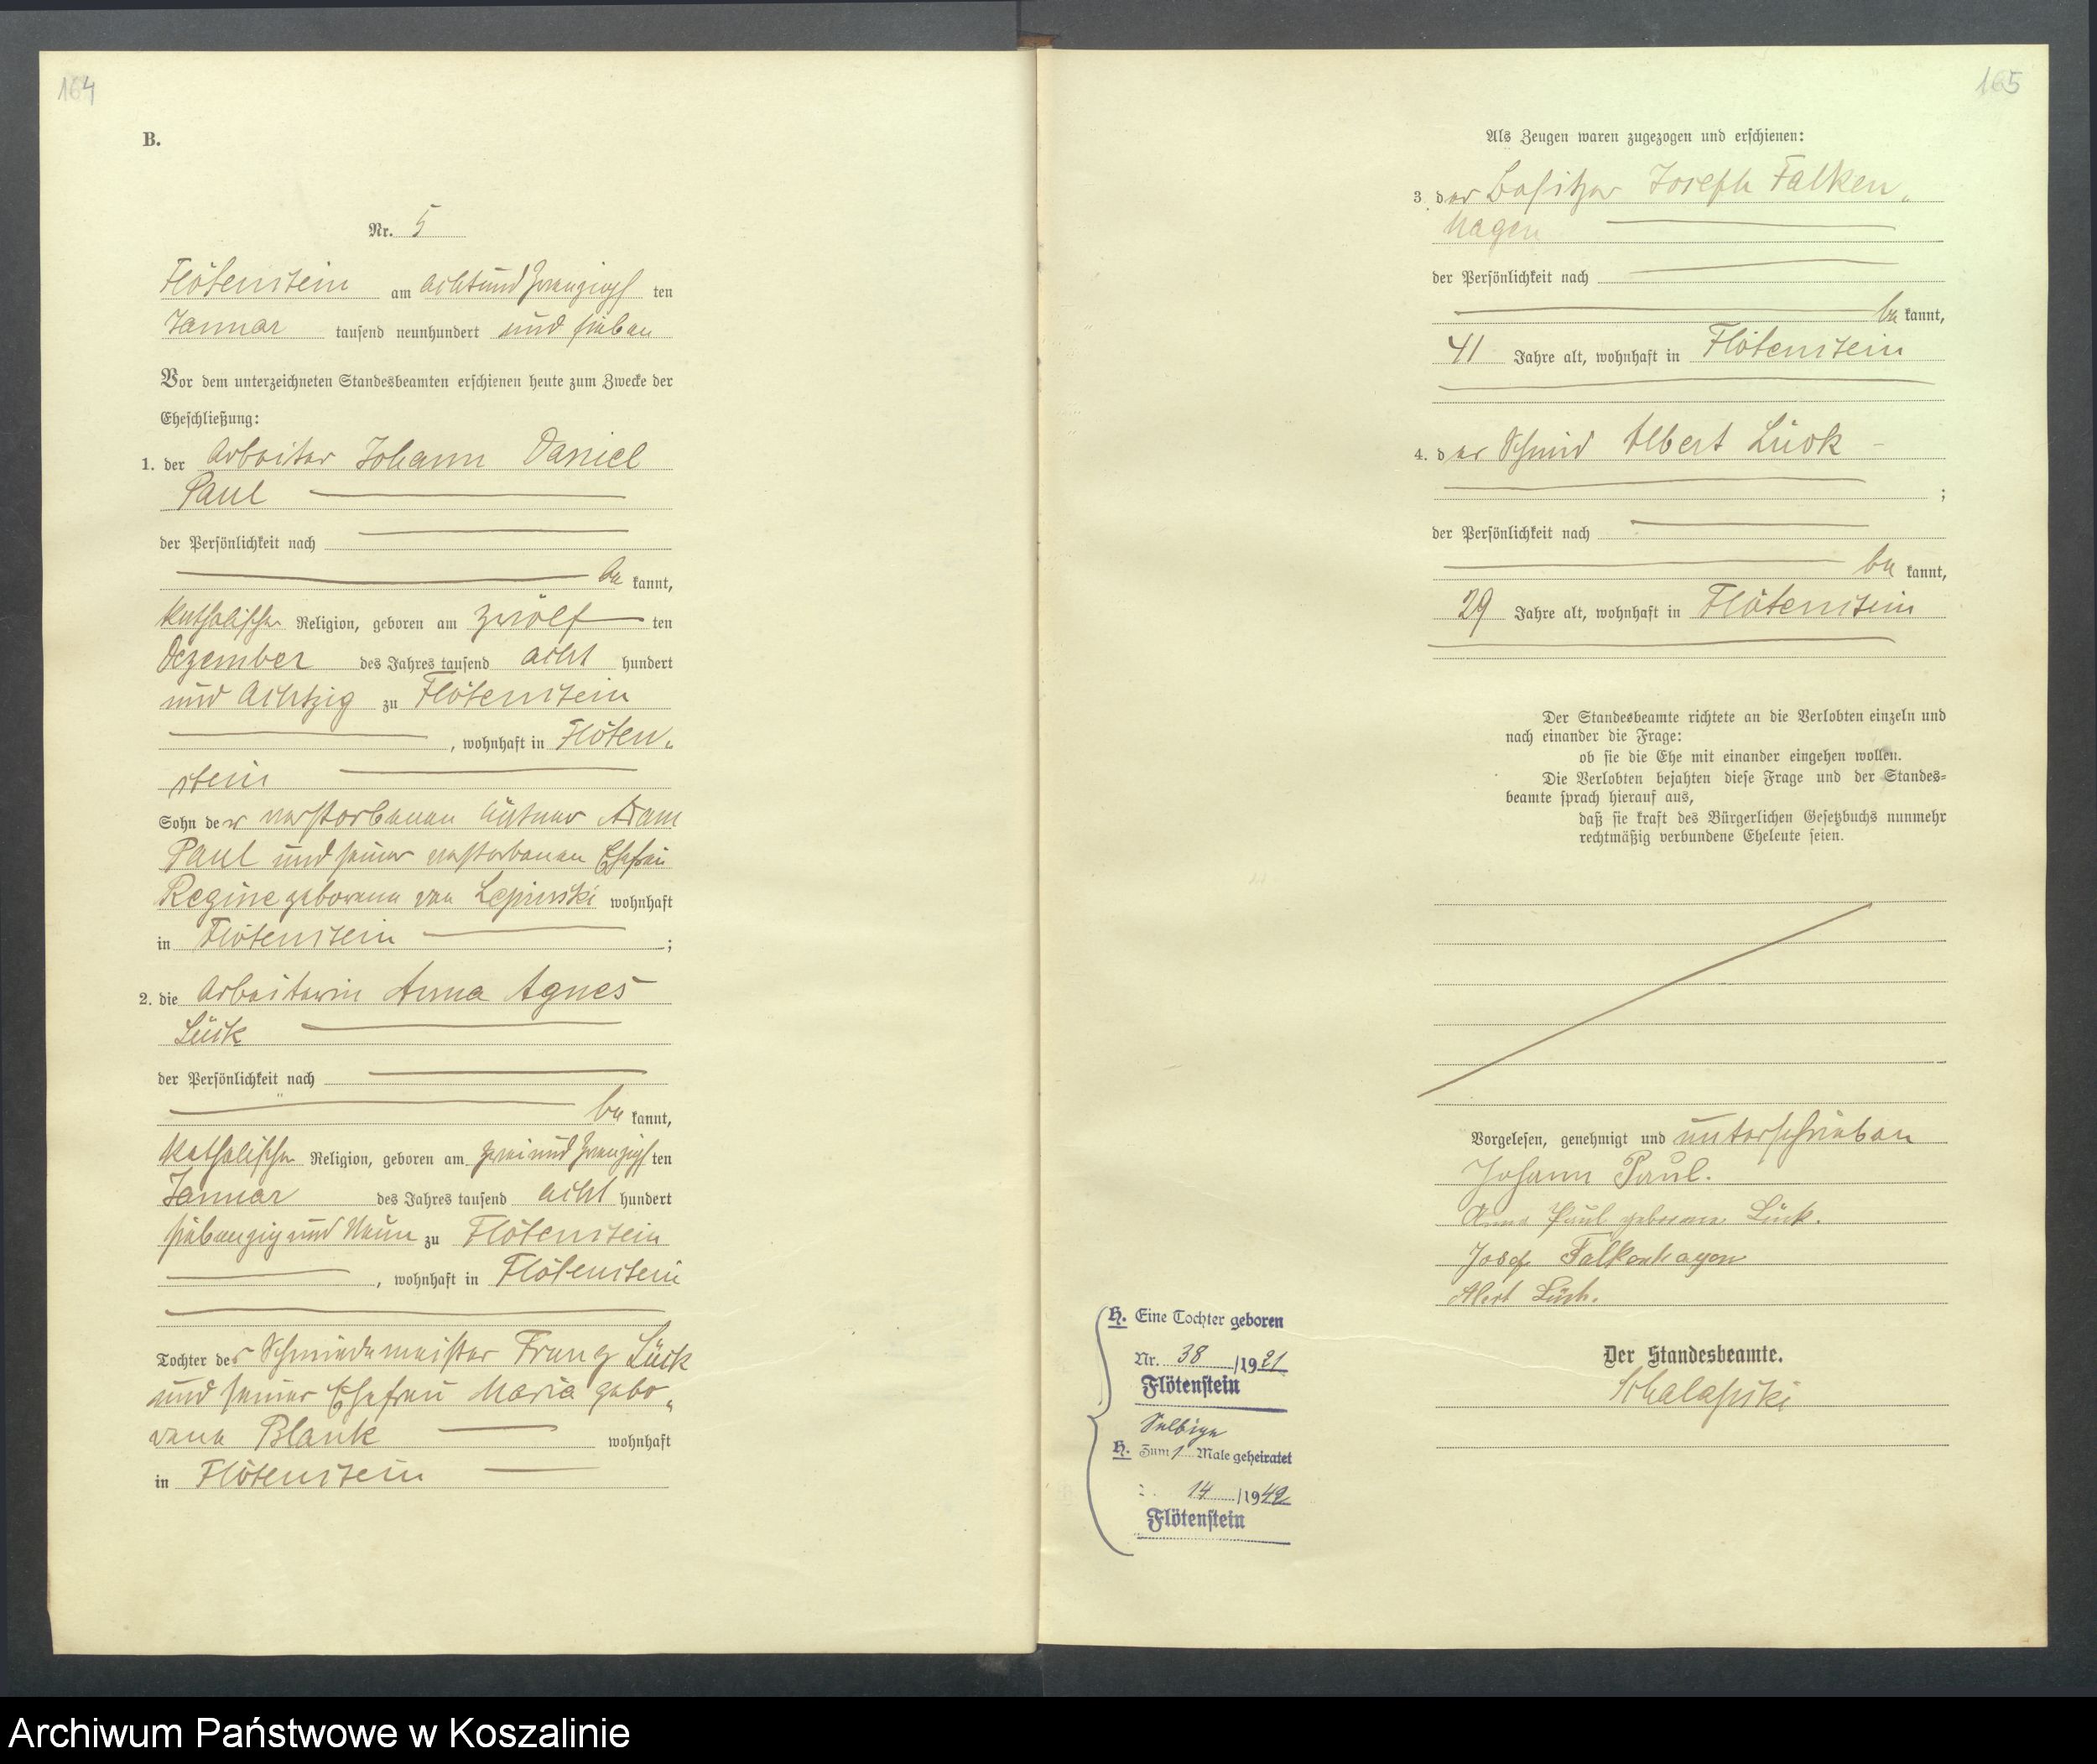 164
B.
Nr. 5
Flötenstein am achtundzwanzigs ten
Januar tausend neunhundert und sieben
Vor dem unterzeichneten Standesbeamten erschienen heute zum Zwecke der
Eheschließung:
1. der Arbeiter Johann Daniel
Paul
der Persönlichkeit nach
be kannt,
katholischer Religion, geboren am zwölf ten
Dezember des Jahres tausend acht hundert
und achtzig zu Flötenstein
, wohnhaft in Flöten-
stein
Sohn der verstorbenen Adam
Paul und seiner verstorbenen Ehefrau
Regine geborene von Lepinski wohnhaft
in Flötenstein ;
2. die Arbeiterin Anna Agnes
Lück
der Persönlichkeit nach
be kannt,
katholischer Religion, geboren am zweiundzwanzigs ten
Januar des Jahres tausend acht hundert
siebenzig und neun zu Flötenstein
, wohnhaft in Flötenstein
Tochter des Schmiedemeister Franz Lück
und seiner Ehefrau Maria gebo-
rene Blank wohnhaft
in Flötenstein
165
Als Zeugen waren zugezogen und erschienen:
3. der Besitzer Joseph Falken-
hagen
der Persönlichkeit nach
be kannt,
41 Jahre alt, wohnhaft in Flötenstein
4. der Schmid Albert Lück
;
der Persönlichkeit nach
be kannt,
29 Jahre alt, wohnhaft in Flötenstein
Der Standesbeamte richtete an die Verlobten einzeln und
nach einander die Frage:
ob sie die Ehe mit einander eingehen wollen.
Die Verlobten bejahten diese Frage und der Standes-
beamte sprach hierauf aus,
daß sie kraft des Bürgerlichen Gesetzbuchs nunmehr
rechtmäßig verbundene Eheleute seien.
Vorgelesen, genehmigt und unterschrieben
Johann Paul.
Anna Paul geborene Lück.
Josef Falkenhagen
Albert Lück.
Der Standesbeamte.
Schalapski
H. Eine Tochter geboren
Nr. 38 /1921
Flötenstein
Selbige
H. Zum 1 Male geheiratet
14 /1942
Flötenstein
Archiwum Państwowe w Koszalinie